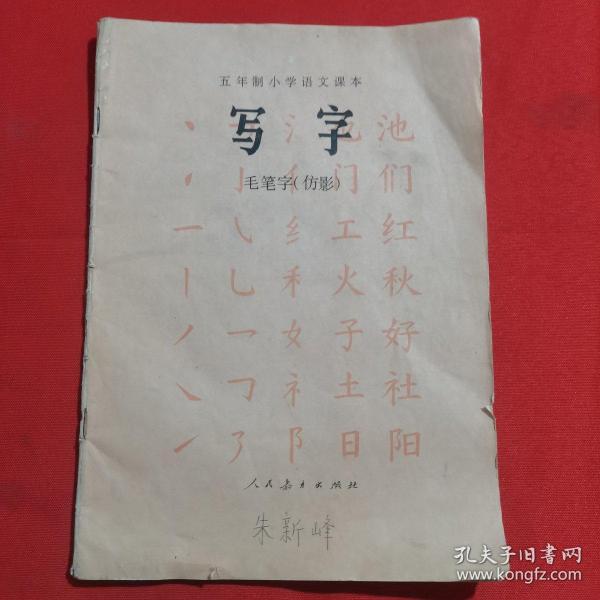 五年制小学语文课本
写字
毛笔字(仿影)
丶 氵 也 池
亅 亻 门 们
一 ㇂ 纟 工 红
丨 乚 禾 火 秋
丿 乛 女 子 好
㇏ ㇕ 礻 土 社
㇀ ㇌ 阝 日 阳
人民教育出版社
朱新峰
孔夫子旧书网
www.kongfz.com